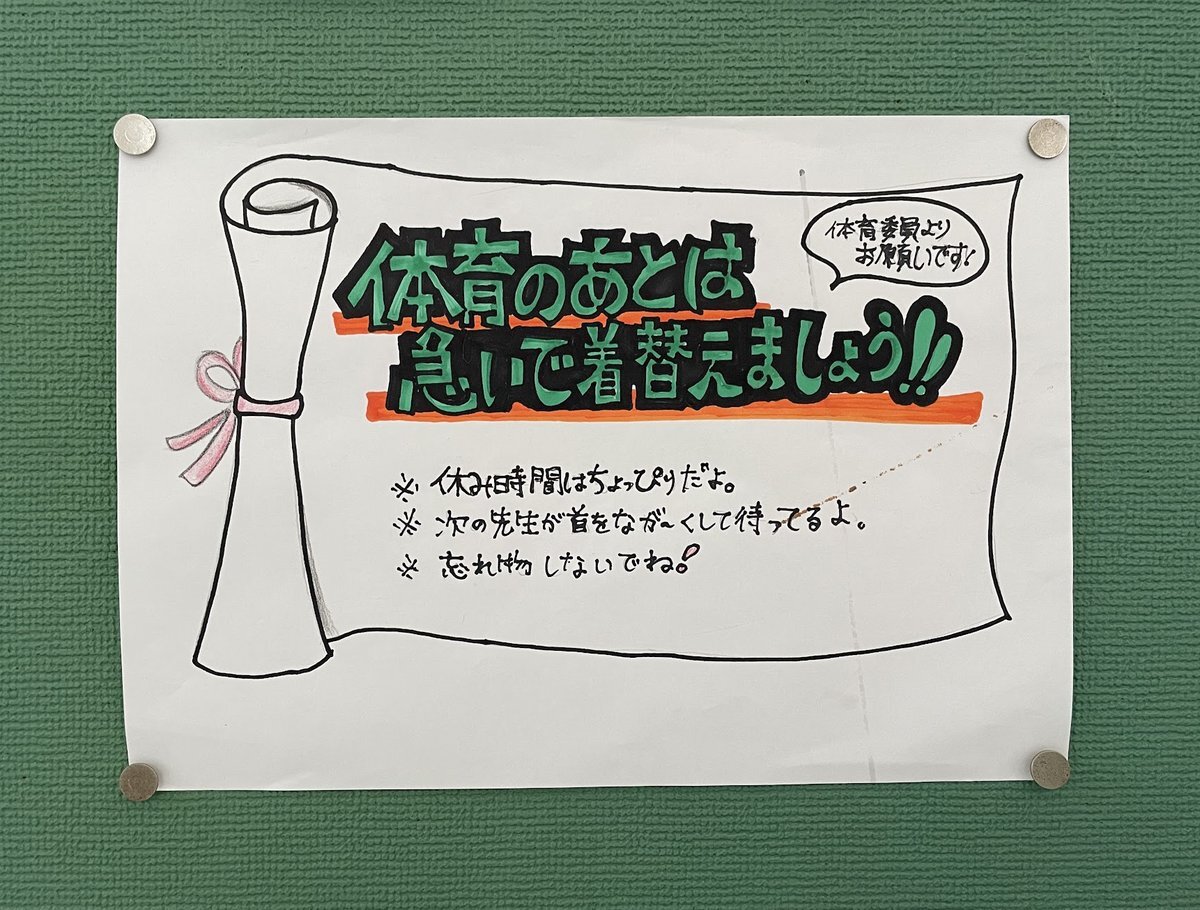 体育委員より
お願いです!
体育のあとは
急いで着替えましょう!!
※ 休み時間はちょっぴりだよ。
※ 次の先生が首をなが〜くして待ってるよ。
※ 忘れ物しないでね!